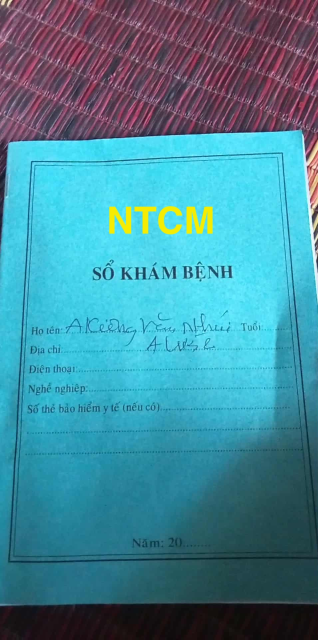 NTCM
SỔ KHÁM BỆNH
Họ tên: A Kiêng Văn Tuổi:
Địa chỉ
Điện thoại:
Nghề nghiệp:
Số thẻ bảo hiểm y tế (nếu có)
Năm: 20